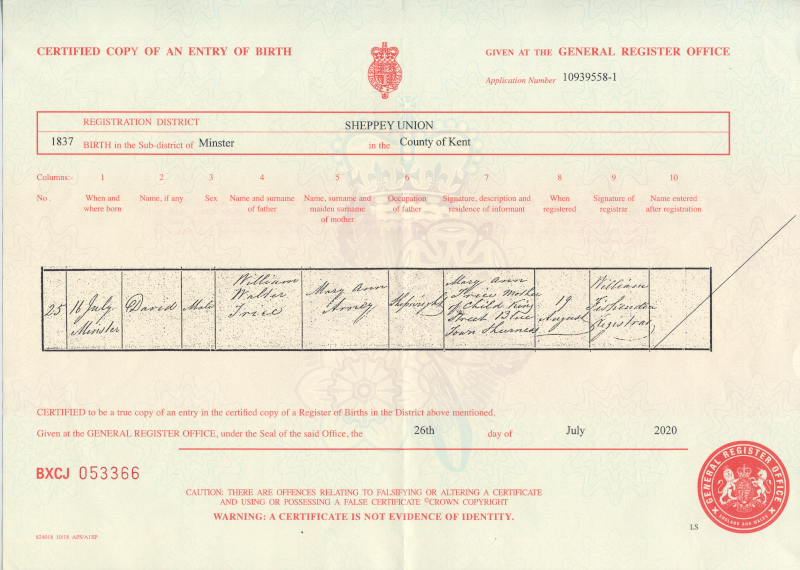 CERTIFIED COPY OF AN ENTRY OF BIRTH
GIVEN AT THE GENERAL REGISTER OFFICE
Application Number 10939558-1
REGISTRATION DISTRICT SHEPPEY UNION
1837 BIRTH in the Sub-district of Minster in the County of Kent
Columns:- 1 2 3 4 5 6 7 8 9 10
No. When and where born
Name, if any
Sex
Name and surname of father
Name, surname and maiden surname of mother
Occupation of father
Signature, description and residence of informant
When registered
Signature of registrar
Name entered after registration
25
16 July
Minister
David
Male
William
Walter
Mary Ann
Shipwright
Mary Ann
Mother
of Child King
Street Blue
Town Sheerness
19
August
William
Registrar
CERTIFIED to be a true copy of an entry in the certified copy of a Register of Births in the District above mentioned.
Given at the GENERAL REGISTER OFFICE, under the Seal of the said Office, the 26th day of July 2020
BXCJ 053366
CAUTION: THERE ARE OFFENCES RELATING TO FALSIFYING OR ALTERING A CERTIFICATE
AND USING OR POSSESSING A FALSE CERTIFICATE ©CROWN COPYRIGHT
WARNING: A CERTIFICATE IS NOT EVIDENCE OF IDENTITY.
GENERAL REGISTER OFFICE
ENGLAND AND WALES
LS